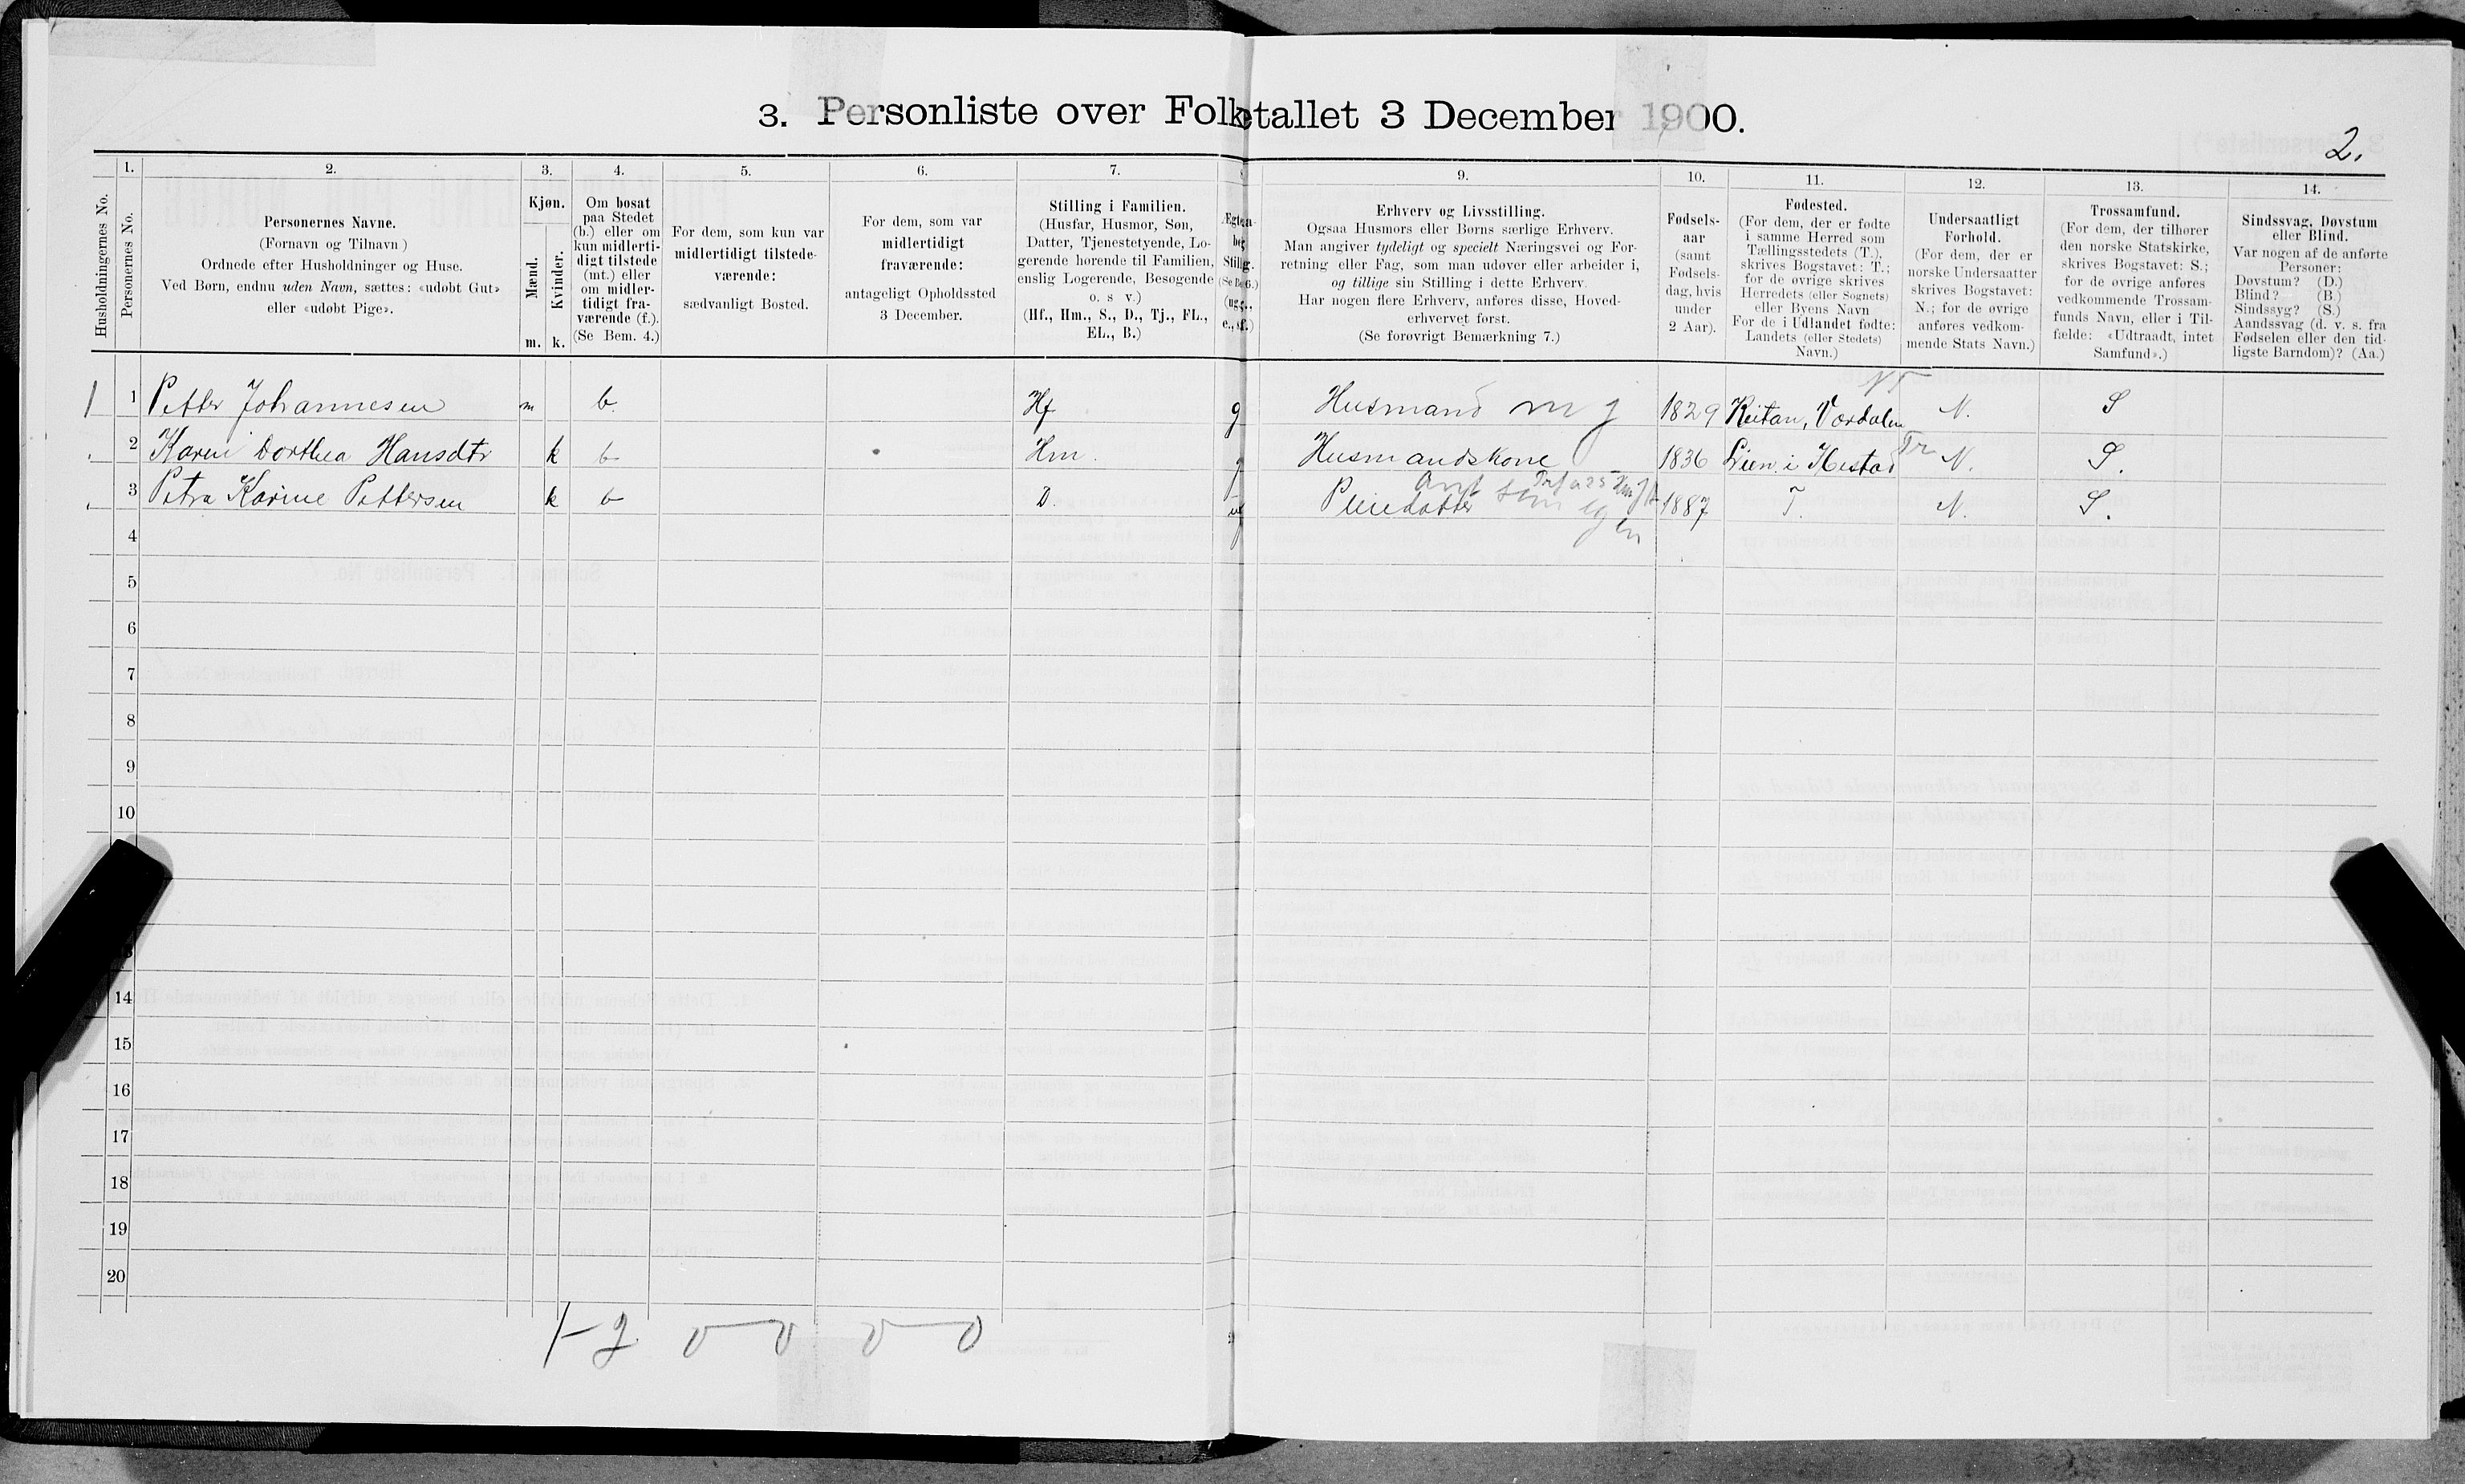 3. Personliste over Folketallet 3 December 1900.
2.
1.
2.
3.
4.
5.
6.
7.
9.
10.
11.
12.
13.
14.
Husholdningernes No.
Personernes No.
Personernes Navne.
(Fornavn og Tilnavn)
Ordnede efter Husholdninger og Huse.
Ved Børn, endnu uden Navn, sættes: «udøbt Gut»
eller «udøbt Pige».
Kjøn.
Mænd.
Kvinder.
m.
k.
Om bosat
paa Stedet
(b.) eller om
kun midlerti-
digt tilstede
(mt.) eller
om midler-
tidigt fra-
værende (f.).
(Se Bem. 4.)
For dem, som kun var
midlertidigt tilstede-
værende:
sædvanligt Bosted.
For dem, som var
midlertidigt
fraværende:
antageligt Opholdssted
3 December.
Stilling i Familien.
(Husfar, Husmor, Søn,
Datter, Tjenestetyende, Lo-
gerende hørende til Familien,
enslig Logerende, Besøgende
o. s v.)
(Hf., Hm., S., D., Tj., FL.,
EL., B.)
Erhverv og Livsstilling.
Ogsaa Husmors eller Børns særlige Erhverv.
Man angiver tydeligt og specielt Næringsvei og For-
retning eller Fag, som man udøver eller arbeider i,
og tillige sin Stilling i dette Erhverv.
Har nogen flere Erhverv, anføres disse, Hoved-
erhvervet først.
(Se forøvrigt Bemærkning 7.)
Fødsels-
aar
(samt
Fødsels-
dag, hvis
under
2 Aar).
Fødested.
(For dem, der er fødte
i samme Herred som
Tællingsstedets (T.),
skrives Bogstavet: T.;
for de øvrige skrives
Herredets (eller Sognets)
eller Byens Navn
For de i Udlandet fødte:
Landets (eller Stedets)
Navn.)
Undersaatligt
Forhold.
(For dem, der er
norske Undersaatter
skrives Bogstavet:
N.; for de øvrige
anføres vedkom-
mende Stats Navn.)
Trossamfund.
(For dem, der tilhører
den norske Statskirke,
skrives Bogstavet: S.;
for de øvrige anføres
vedkommende Trossam-
funds Navn, eller i Til-
fælde: «Udtraadt, intet
Samfund».)
Sindssvag, Døvstum
eller Blind.
Var nogen af de anførte
Personer:
Døvstum? (D.)
Blind? (B.)
Sindssyg? (S.)
Aandssvag (d. v. s. fra
Fødselen eller den tid-
ligste Barndom)? (Aa.)
1 1 Petter Johannesen m b. Hf g Husmand m j 1829 Reitan, Værdalen N. S
2 Karen Dorthea Hansdtr k b Hm. g Husmandskone 1836 Lien i Hestad N. S.
3 Petra Karine Pettersen k b D. Pleiedatter som egen 1887 T. N. S.
4
5
6
7
8
9
10
14
15
16
17
18
19
20
1-2 0-0 0-0